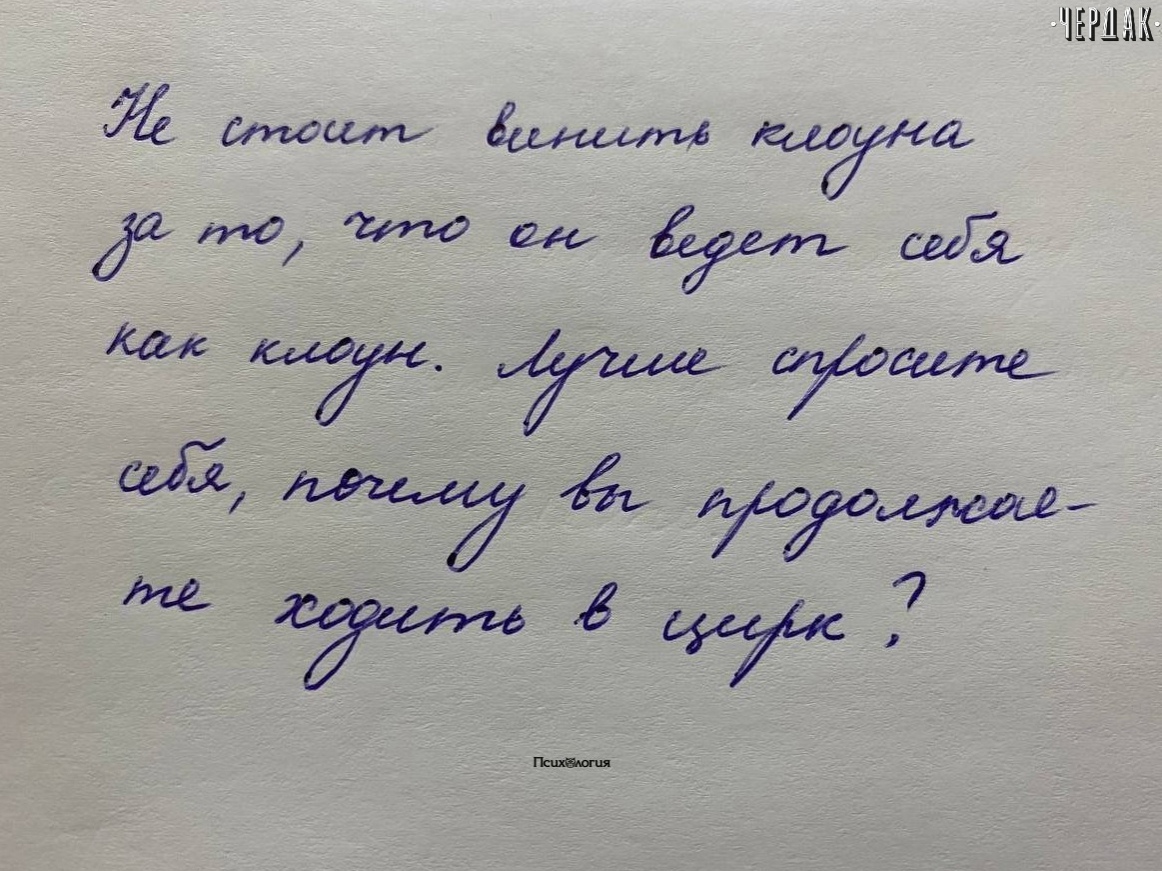 ·ЧЕРДАК·
Не стоит винить клоуна
за то, что он ведет себя
как клоун. Лучше спросите
себя, почему вы продолжае-
те ходить в цирк?
Психология